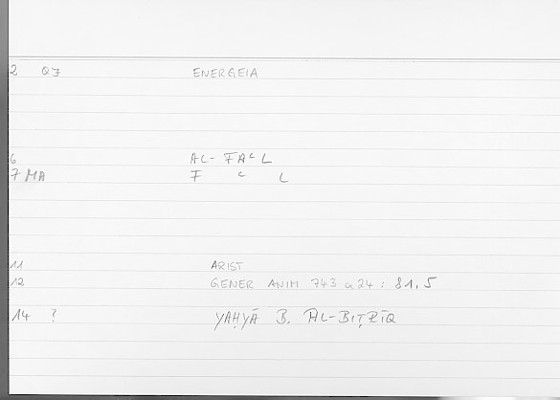 2 QF ENERGEIA
6 AL- FAᶜL
7 MA F ᶜ L
11 ARIST
12 GENER ANIM 743 a 24 : 81.5
14 ? YAḤYĀ B. AL-BIṬRĪQ